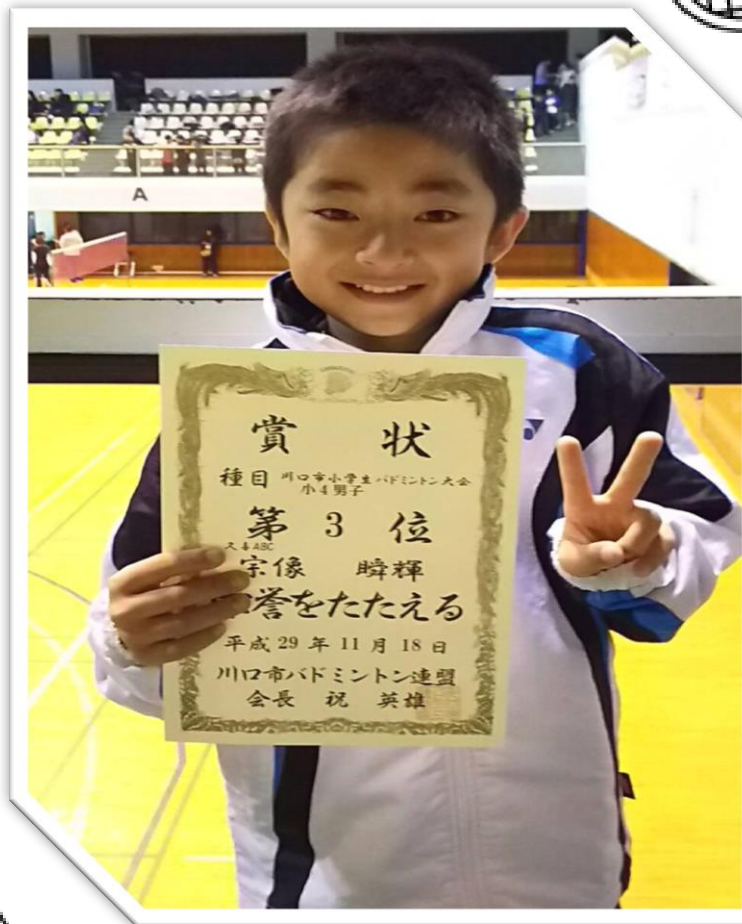 A
賞状
種目 川口市小学生バドミントン大会
小4男子
第3位
ABC
宗像 瞬輝
誉をたたえる
平成29年11月18日
川口市バドミントン連盟
会長 祝 英雄